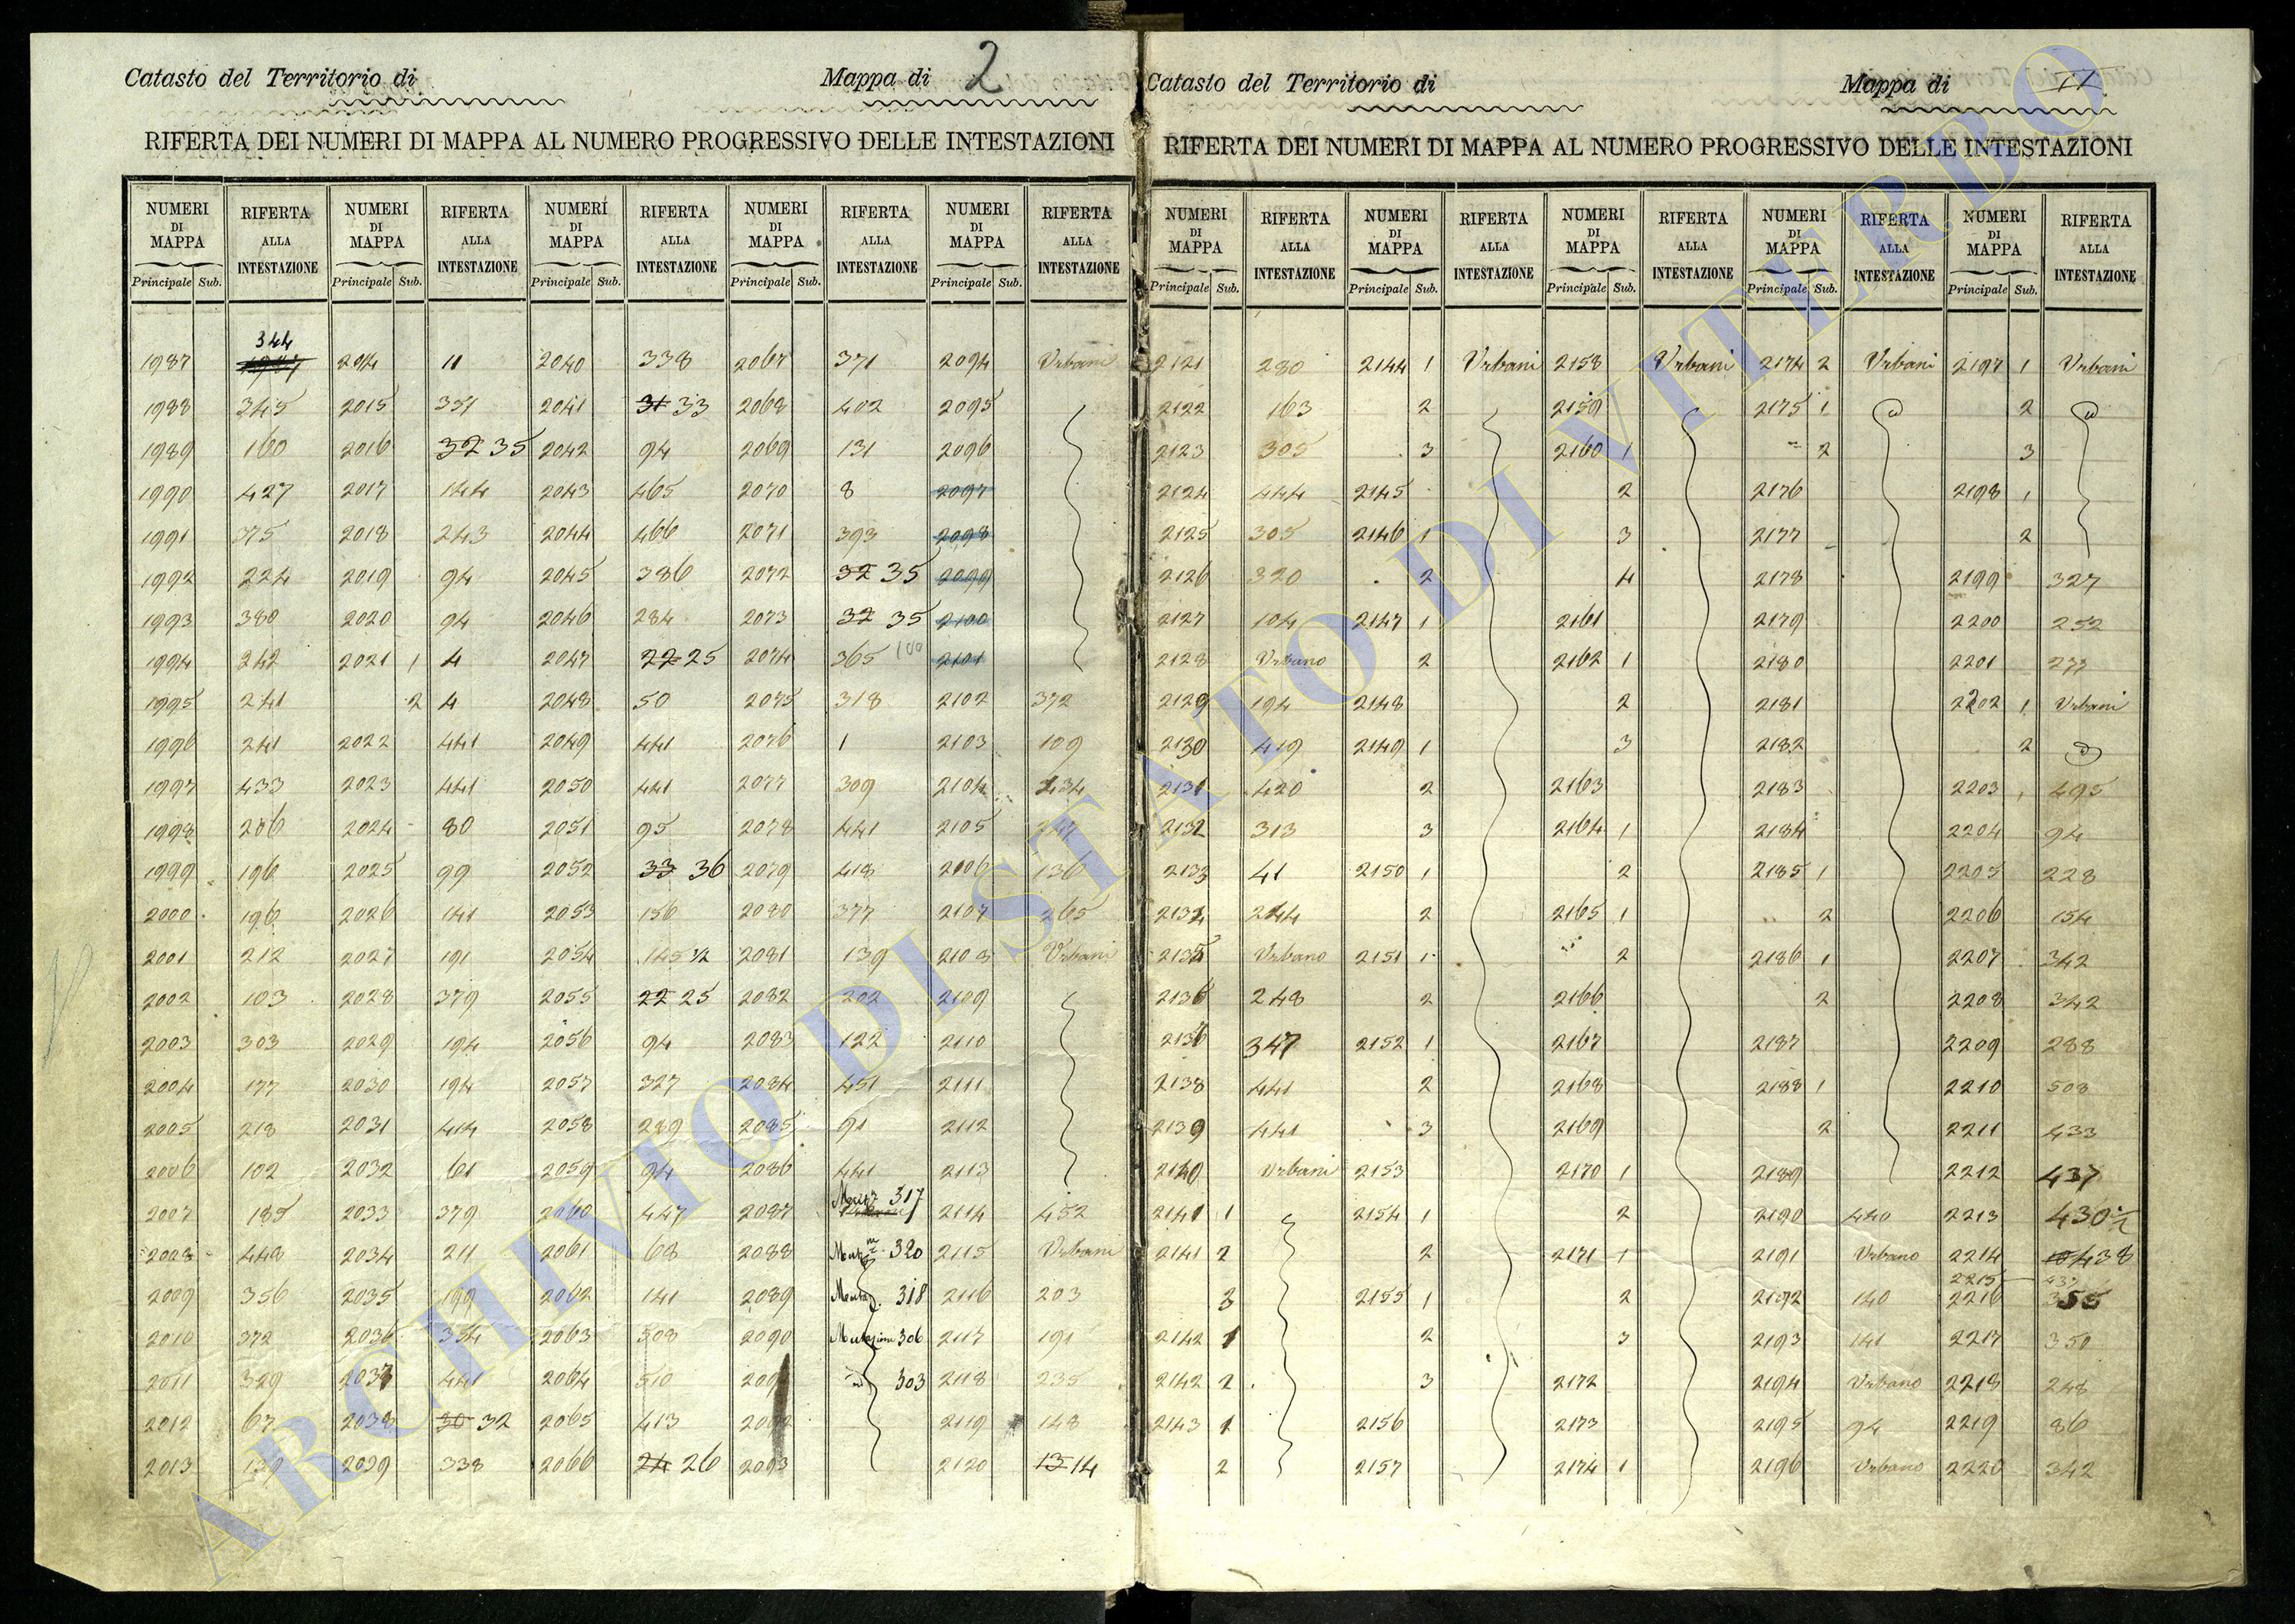 Catasto del Territorio di Mappa di 2
RIFERTA DEI NUMERI DI MAPPA AL NUMERO PROGRESSIVO DELLE INTESTAZIONI
NUMERI DI MAPPA RIFERTA ALLA INTESTAZIONE NUMERI DI MAPPA RIFERTA ALLA INTESTAZIONE NUMERI DI MAPPA RIFERTA ALLA INTESTAZIONE NUMERI DI MAPPA RIFERTA ALLA INTESTAZIONE NUMERI DI MAPPA RIFERTA ALLA INTESTAZIONE
Principale Sub. Principale Sub. Principale Sub. Principale Sub. Principale Sub.
344
1987 2014 11 2040 338 2067 371 2094 Urbani
1988 345 2015 351 2041 31 33 2068 402 2095
1989 160 2016 32 35 2042 94 2069 131 2096
1990 427 2017 144 2043 465 2070 8 2097
1991 375 2018 243 2044 466 2071 393 2098
1992 224 2019 94 2045 386 2072 32 35 2099
1993 380 2020 94 2046 284 2073 32 35 2100
1994 242 2021 1 4 2047 22 25 2074 365 100 2101
1995 241 2 4 2048 50 2075 318 2102 372
1996 241 2022 441 2049 441 2076 1 2103 109
1997 433 2023 441 2050 441 2077 309 2104 434
1998 206 2024 80 2051 95 2078 441 2105
1999 196 2025 99 2052 33 36 2079 418 2106 136
2000 196 2026 141 2053 156 2080 377 2107 265
2001 212 2027 191 2054 145 1/2 2081 139 2108 Urbani
2002 103 2028 379 2055 22 25 2082 202 2109
2003 303 2029 194 2056 94 2083 122 2110
2004 177 2030 194 2057 327 2084 451 2111
2005 218 2031 414 2058 289 2085 91 2112
2006 102 2032 61 2059 94 2086 441 2113
2007 185 2033 379 2060 447 2087 317 2114 452
2008 448 2034 211 2061 68 2088 320 2115 Urbani
2009 356 2035 199 2062 141 2089 318 2116 203
2010 372 2036 354 2063 308 2090 Mutazioni 306 2117 191
2011 329 2037 441 2064 510 2091 303 2118 235
2012 67 2038 30 32 2065 413 2092 2119 148
2013 139 2039 338 2066 24 26 2093 2120 13 14
Catasto del Territorio di Mappa di 11
RIFERTA DEI NUMERI DI MAPPA AL NUMERO PROGRESSIVO DELLE INTESTAZIONI
NUMERI DI MAPPA RIFERTA ALLA INTESTAZIONE NUMERI DI MAPPA RIFERTA ALLA INTESTAZIONE NUMERI DI MAPPA RIFERTA ALLA INTESTAZIONE NUMERI DI MAPPA RIFERTA ALLA INTESTAZIONE NUMERI DI MAPPA RIFERTA ALLA INTESTAZIONE
Principale Sub. Principale Sub. Principale Sub. Principale Sub. Principale Sub.
2121 280 2144 1 Urbani 2158 Urbani 2174 2 Urbani 2197 1 Urbani
2122 163 2 2159 2175 1 2
2123 305 3 2160 1 2 3
2124 444 2145 2 2176 2198 1
2125 305 2146 1 3 2177 2
2126 320 2 4 2178 2199 327
2127 104 2147 1 2161 2179 2200 252
2128 Urbano 2 2162 1 2180 2201 233
2129 194 2148 2 2181 2202 1 Urbani
2130 419 2149 1 3 2182 2
2131 420 2 2163 2183 2203 495
2132 313 3 2164 1 2184 2204 94
2133 41 2150 1 2 2185 1 2205 228
2134 244 2 2165 1 2 2206 154
2135 Urbano 2151 1 2 2186 1 2207 342
2136 248 2 2166 2 2208 342
2136 347 2152 1 2167 2187 2209 288
2138 441 2 2168 2188 1 2210 508
2139 441 3 2169 2 2211 433
2140 Urbani 2153 2170 1 2189 2212 437
2141 1 2154 1 2 2190 440 2213 430 1/2
2141 2 2 2171 1 2191 Urbano 2214 10 438
2215
3 2155 1 2 2192 140 2216 355
2142 1 2 3 2193 141 2217 350
2142 2 3 2172 2194 Urbano 2218 248
2143 1 2156 2173 2195 94 2219 86
2 2157 2174 1 2196 Urbano 2220 342
ARCHIVIO DI STATO DI VITERBO